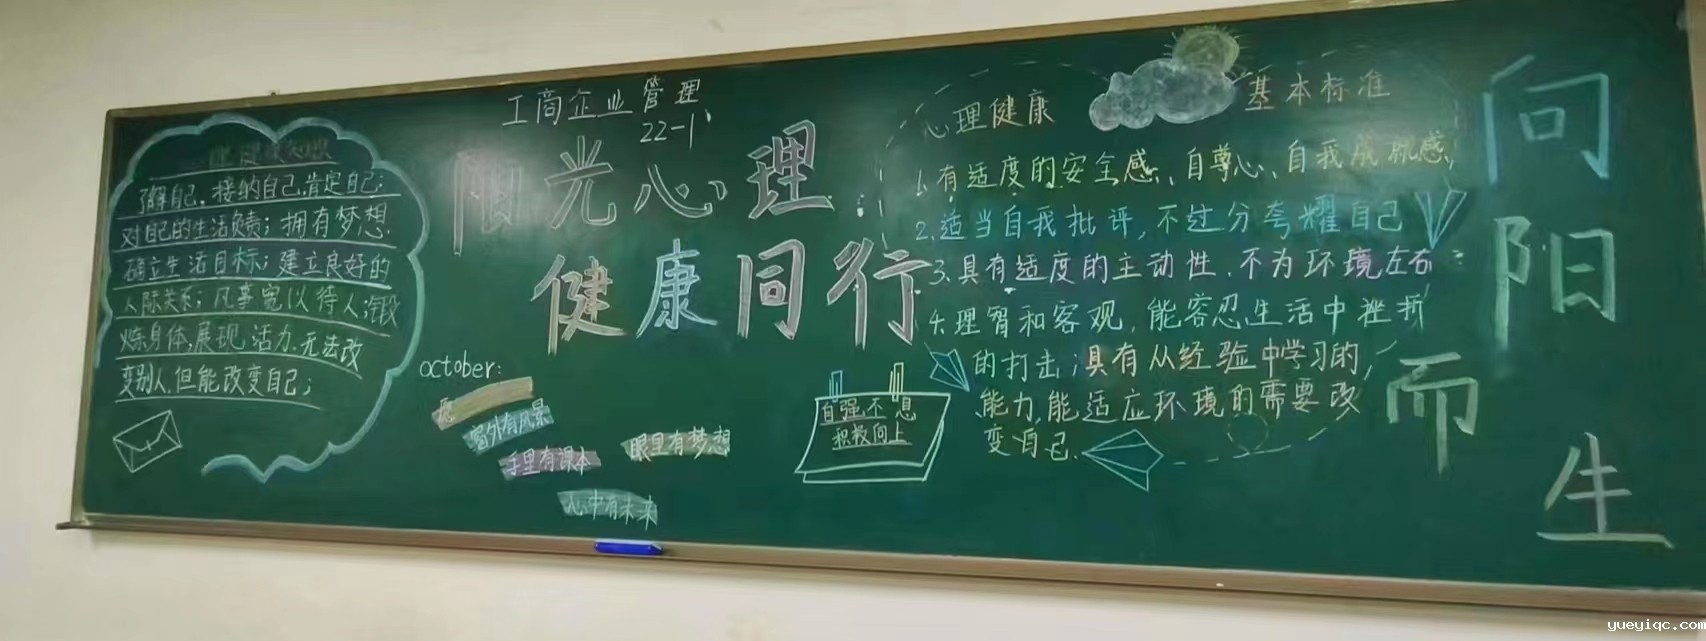 工商企业管理
22-1
阳光心理
健康同行
了解自己,接纳自己,肯定自己;
对自己的生活负责;拥有梦想
确立生活目标;建立良好的
人际关系;凡事宽以待人;锻
炼身体,展现活力.无法改
变别人,但能改变自己;
october:
窗外有风景
手里有课本
眼里有梦想
心中有未来
自强不息
积极向上
心理健康 基本标准
1.有适度的安全感、自尊心、自我成就感
2.适当自我批评,不过分夸耀自己
3.具有适度的主动性.不为环境左右
4.理智和客观,能容忍生活中挫折
的打击;具有从经验中学习的,
能力,能适应环境的需要改
变自己.
向
阳
而
生
yueyiqc.com